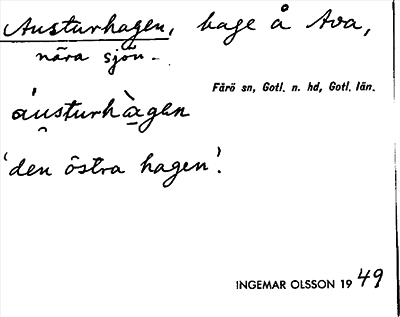 Austurhagen, hage å Ava,
nära sjön.
Fårö sn, Gotl. n. hd, Gotl. län.
áu̯sturhàgen
'den östra hagen'.
INGEMAR OLSSON 1949